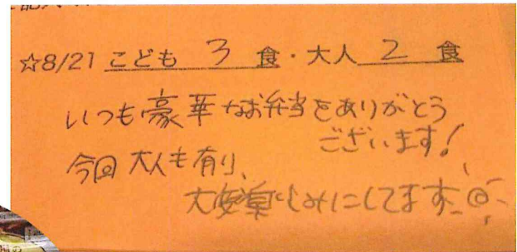 ☆8/21 こども 3 食・大人 2 食
いつも豪華なお弁当をありがとう
ございます!
今回大人も有り、
大変楽しみにしてます